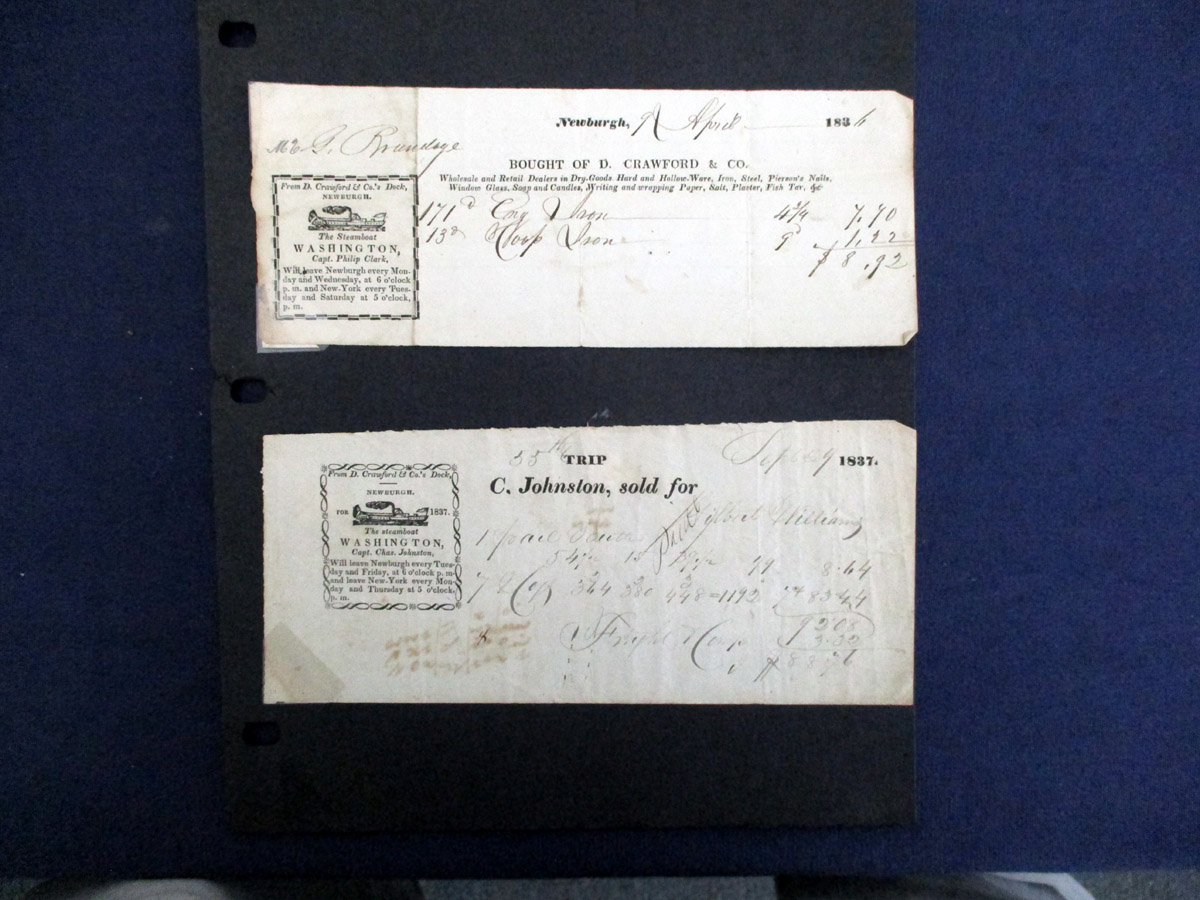 Newburgh, 9 April 183
Mr G. Brundage
BOUGHT OF D. CRAWFORD & CO.
Wholesale and Retail Dealers in Dry-Goods Hard and Hollow-Ware, Iron, Steel, Pierson's Nails,
Window Glass, Soap and Candles, Writing and wrapping Paper, Salt, Plaster, Fish Tar, &c
From D. Crawford & Co.'s Dock,
NEWBURGH.
The Steamboat
WASHINGTON,
Capt. Philip Clark,
Will leave Newburgh every Mon-
day and Wednesday, at 6 o'clock
p. m. and New-York every Tues-
day and Saturday at 5 o'clock,
p. m.
171 Eng Iron 4¼ 7.70
13 Hoop Iron 9 1.22
$ 8.92
35th TRIP 1837.
C. Johnston, sold for
From D. Crawford & Co.'s Dock,
NEWBURGH.
FOR 1837.
The steamboat
WASHINGTON,
Capt. Chas. Johnston,
Will leave Newburgh every Tues-
day and Friday, at 6 o'clock p. m
and leave New-York every Mon-
day and Thursday at 5 o'clock,
p. m.
Gilbert Williams
1
15 8.44
7 344 380 448=1192 83.44
Freight